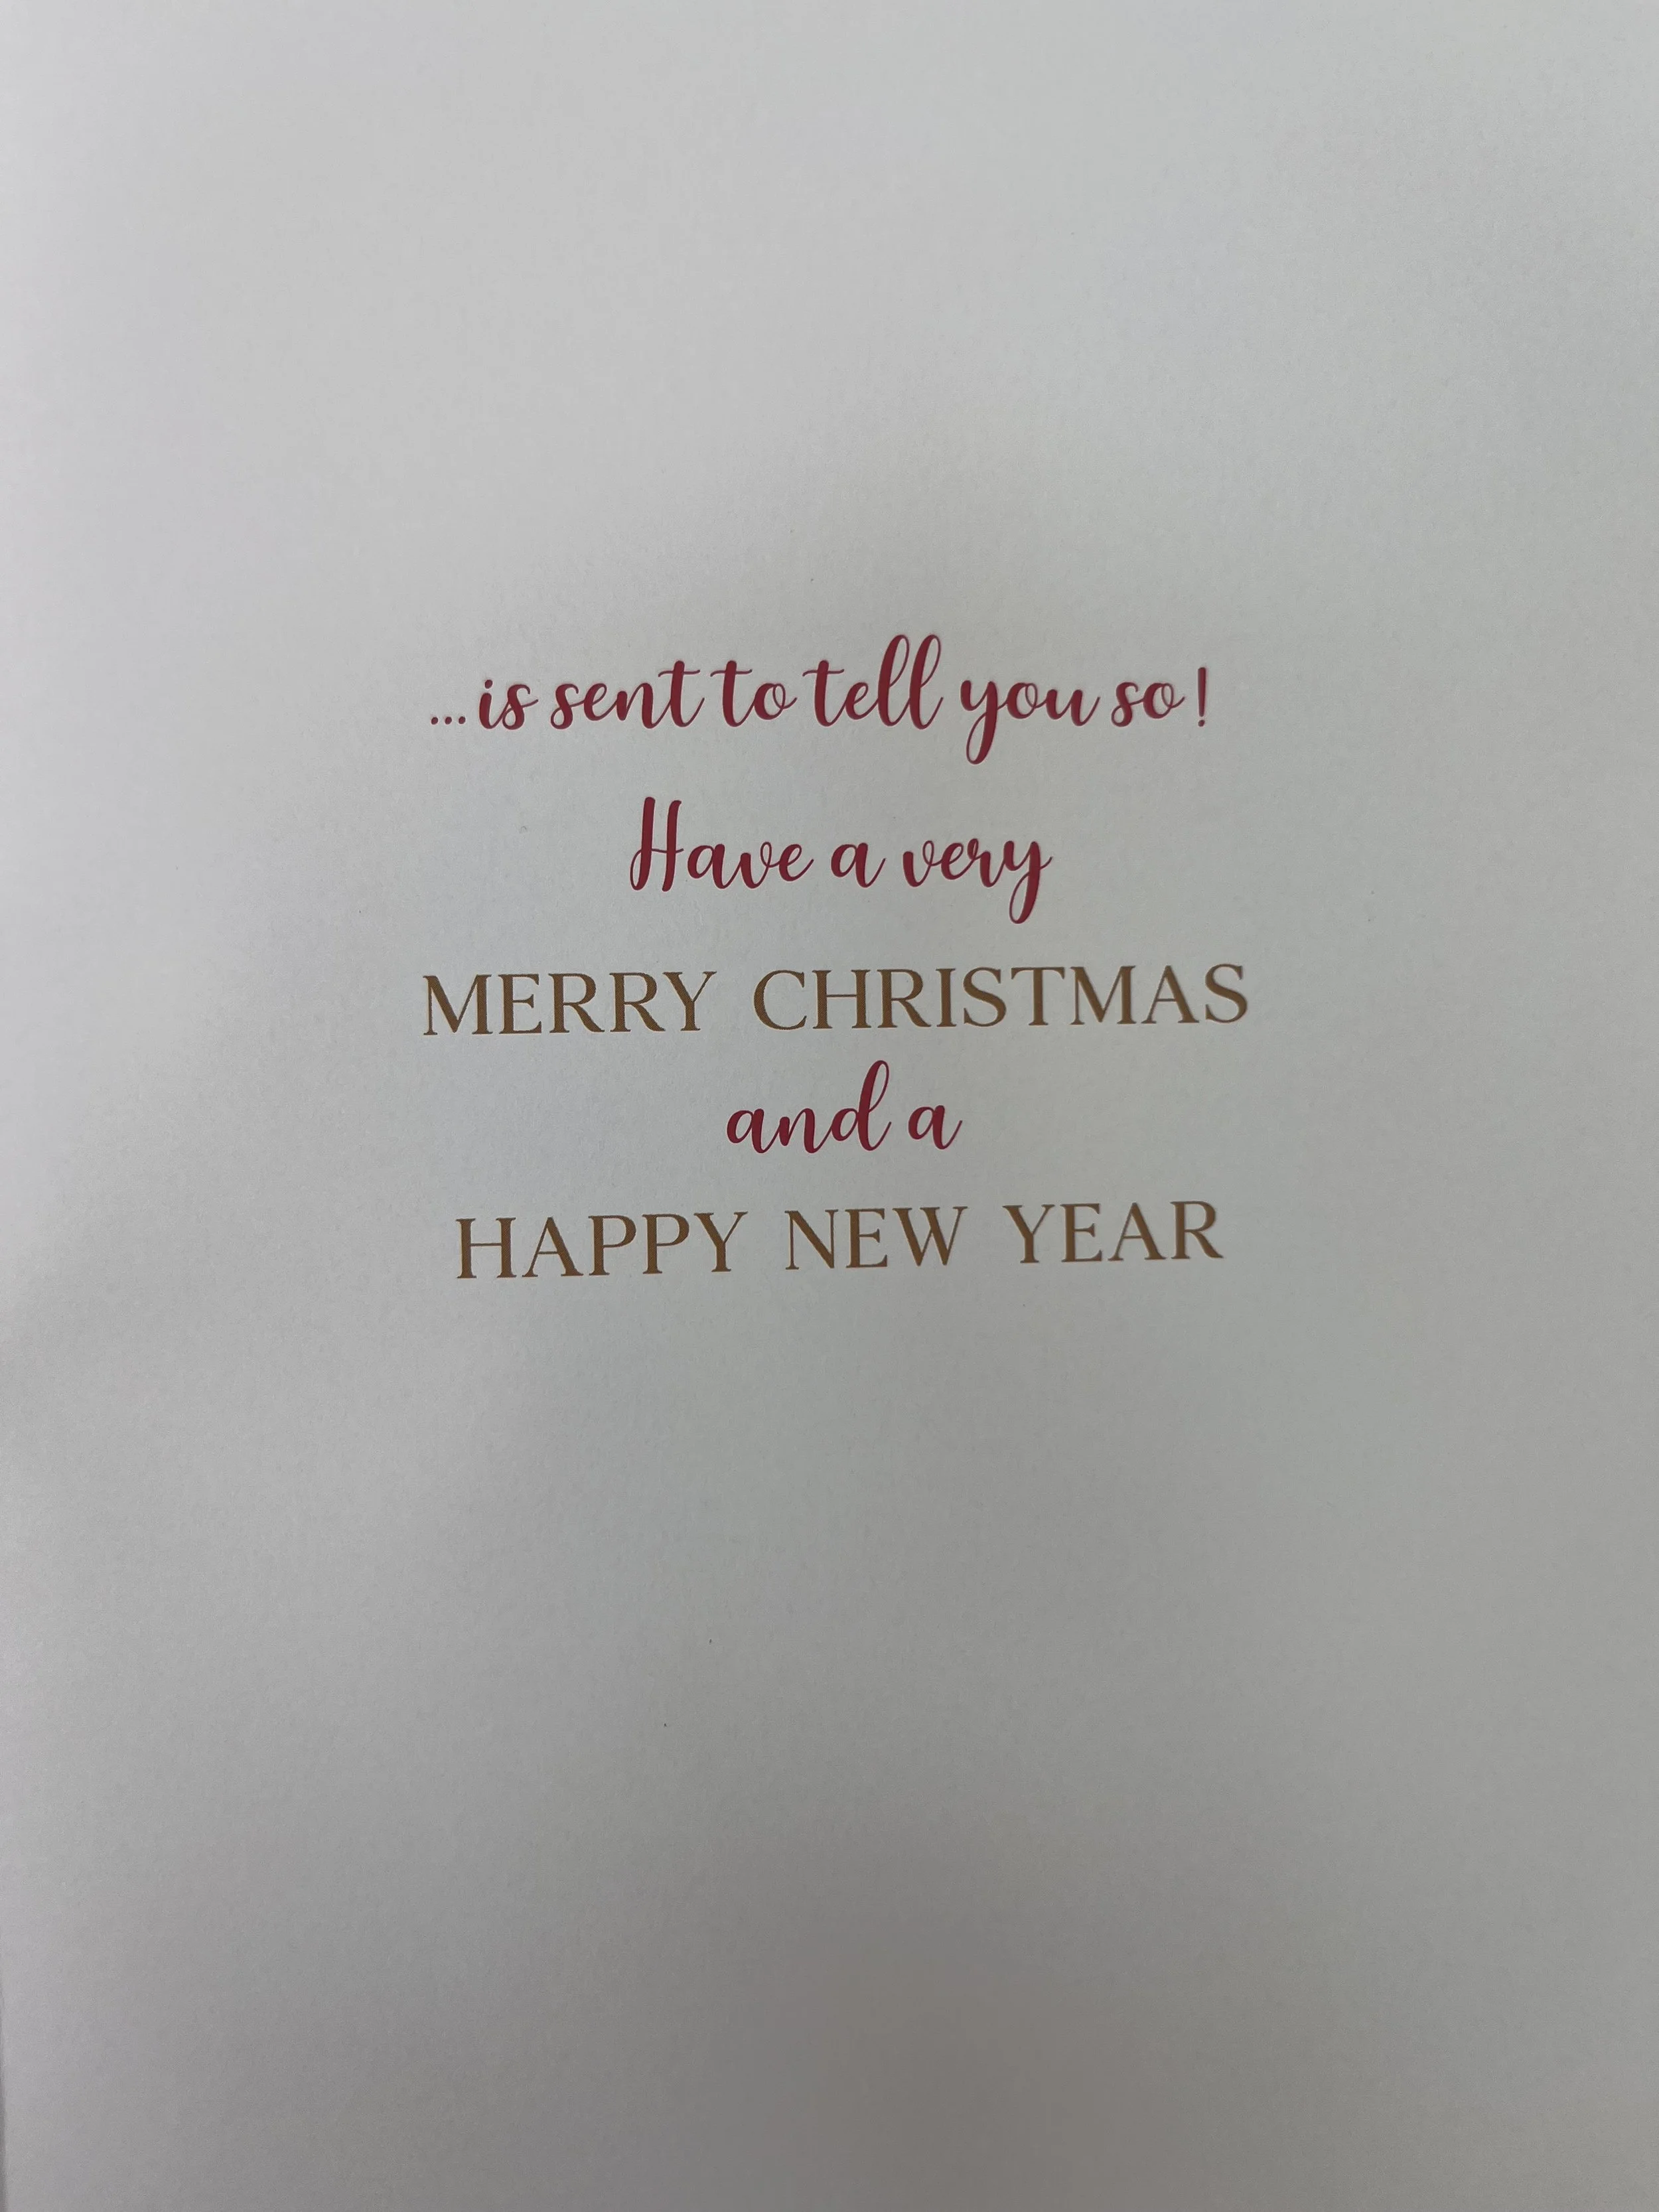 ...is sent to tell you so!
Have a very
MERRY CHRISTMAS
and a
HAPPY NEW YEAR